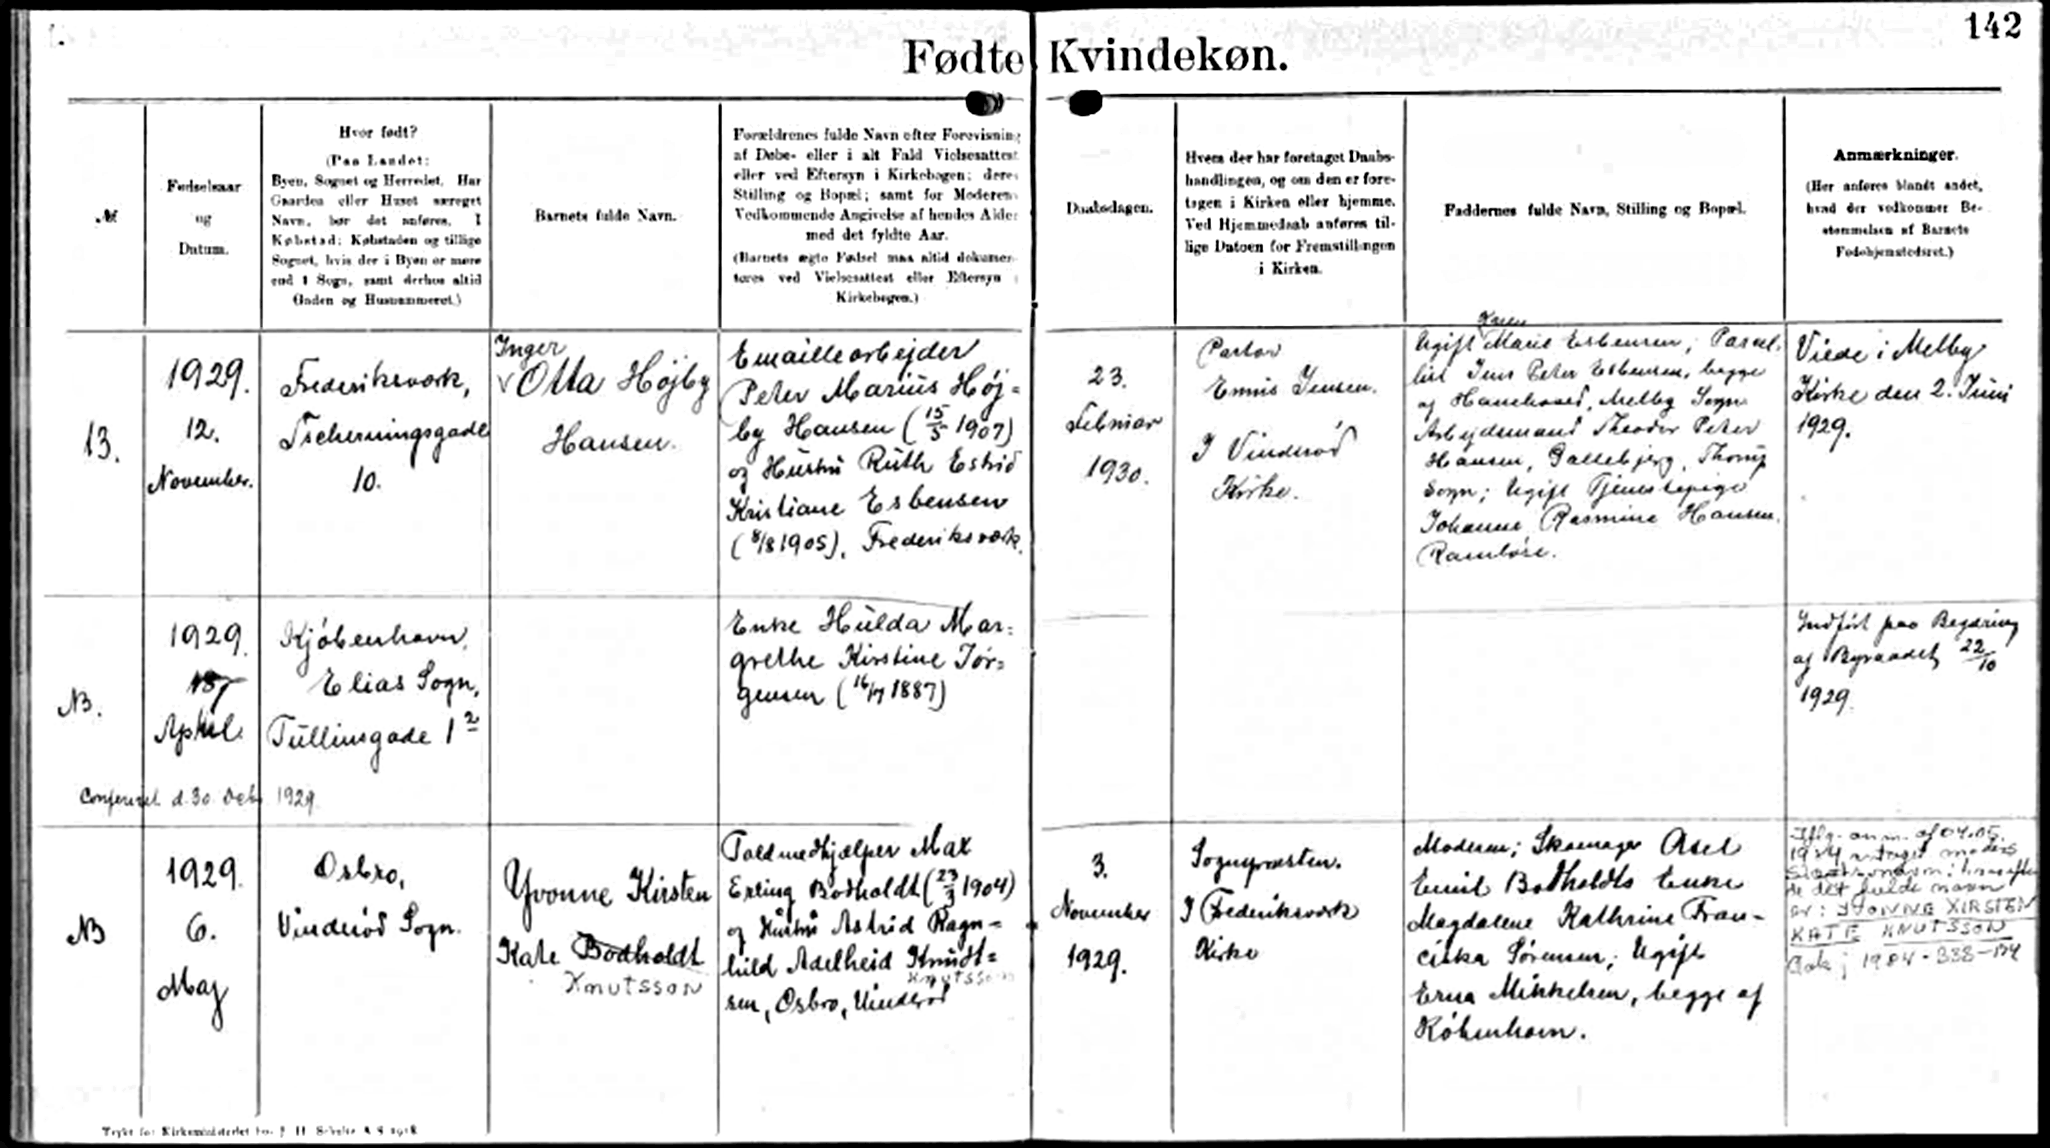 142
Fødte Kvindekøn.
№
Fødselsaar
og
Datum.
Hvor født?
(Paa Landet:
Byen, Sognet og Herredet. Har
Gaarden eller Huset særeget
Navn, bør det anføres. I
Købstad: Købstaden og tillige
Sognet, hvis der i Byen er mere
end 1 Sogn, samt derhos altid
Gaden og Husnummeret.)
Barnets fulde Navn.
Forældrenes fulde Navn efter Forevisning
af Døbe- eller i alt Fald Vielsesattest
eller ved Eftersyn i Kirkebogen; deres
Stilling og Bopæl; samt for Moderens
Vedkommende Angivelse af hendes Alder
med det fyldte Aar.
(Barnets ægte Fødsel maa altid dokumen-
teres ved Vielsesattest eller Eftersyn i
Kirkebogen.)
Daabsdagen.
Hvem der har foretaget Daabs-
handlingen, og om den er fore-
tagen i Kirken eller hjemme.
Ved Hjemmedaab anføres til-
lige Datoen for Fremstillingen
i Kirken.
Faddernes fulde Navn, Stilling og Bopæl.
Anmærkninger.
(Her anføres blandt andet,
hvad der vedkommer Be-
stemmelsen af Barnets
Fødehjemstedsret.)
13.
1929.
12.
November.
Frederiksværk,
Tscherningsgade
10.
Inger
√ Otta Højby
Hansen.
Emaillearbejder
Peter Marius Høj=
by Hansen (15/5 1907)
og Hustru Ruth Estrid
Kristiane Esbensen
(8/8 1905), Frederiksværk.
23.
Februar
1930.
Pastor
Ennis Jensen.
I Vinderød
Kirke.
Karen
Ugift Marie Esbensen, Parcel-
list Jens Peter Esbensen, begge
af Hanehoved, Melby Sogn
Arbejdsmand Theodor Peter
Hansen, Gallebjerg, Thorup
Sogn; Ugift Tjenestepige
Johanne Rasmine Hansen.
Ramløse.
Viede i Melby
Kirke den 2. Juni
1929.
NB.
1929.
April.
Kjøbenhavn,
Elias Sogn,
Tullinsgade 1 2
Enke Hulda Mar=
grethe Kirstine Jør=
gensen (16/4 1887)
Indført paa Begæring
af Byraadet 22/10
1929.
Confereret d. 30. Octb. 1929.
NB
1929.
6.
Maj
Osbro,
Vinderød Sogn.
Yvonne Kirsten
Kate Bodholdt
Knutsson
Toldmedhjælper Max
Erling Bodholdt (23/3 1904)
og Hustru Astrid Ragn=
hild Adelheid Knudt=
Knutsson
sen, Osbro, Vinderød
3.
November
1929.
Sognepræsten.
I Frederiksværk
Kirke
Moderen; Skomager Axel
Emil Bodholdts Enke
Magdalene Kathrine Fran-
ciska Sørensen; Ugift
Erna Mikkelsen, begge af
København.
Iflg. anm. af 04.05.
1984 er taget moders
slægtsnavn; herefter
det fulde navn
er: YVONNE KIRSTEN
KATE KNUTSSON
1984-338-174